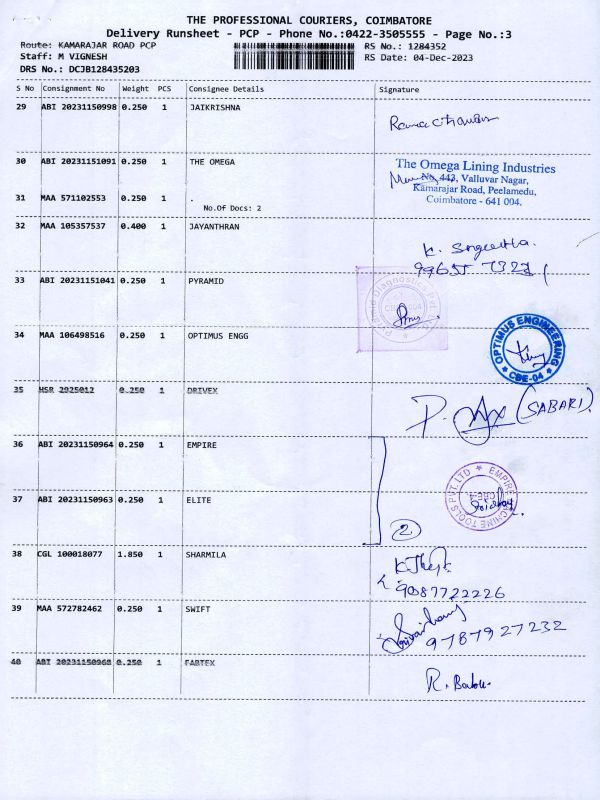 THE PROFESSIONAL COURIERS, COIMBATORE
Delivery Runsheet - PCP - Phone No.:0422-3505555 - Page No.:3
Route: KAMARAJAR ROAD PCP RS No.: 1284352
Staff: M VIGNESH RS Date: 04-Dec-2023
DRS No.: DCJB128435203
S No Consignment No Weight PCS Consignee Details Signature
29 ABI 20231150998 0.250 1 JAIKRISHNA
30 ABI 20231151091 0.250 1 THE OMEGA
The Omega Lining Industries
No. 443, Valluvar Nagar,
Kamarajar Road, Peelamedu,
Coimbatore - 641 004.
31 MAA 571102553 0.250 1 .
No.Of Docs: 2
32 MAA 105357537 0.400 1 JAYANTHRAN
K. Sngeetha.
33 ABI 20231151041 0.250 1 PYRAMID
34 MAA 106498516 0.250 1 OPTIMUS ENGG
OPTIMUS ENGINEERING
CBE-04
35 HSR 2925012 0.250 1 DRIVEX
(SABARI)
36 ABI 20231150964 0.250 1 EMPIRE
EMPIRE MACHINE TOOLS PVT. LTD
37 ABI 20231150963 0.250 1 ELITE
2
38 CGL 100018077 1.850 1 SHARMILA
9087722226
39 MAA 572782462 0.250 1 SWIFT
9787927232
40 ABI 20231150960 0.250 1 FABTEX
R. Babu